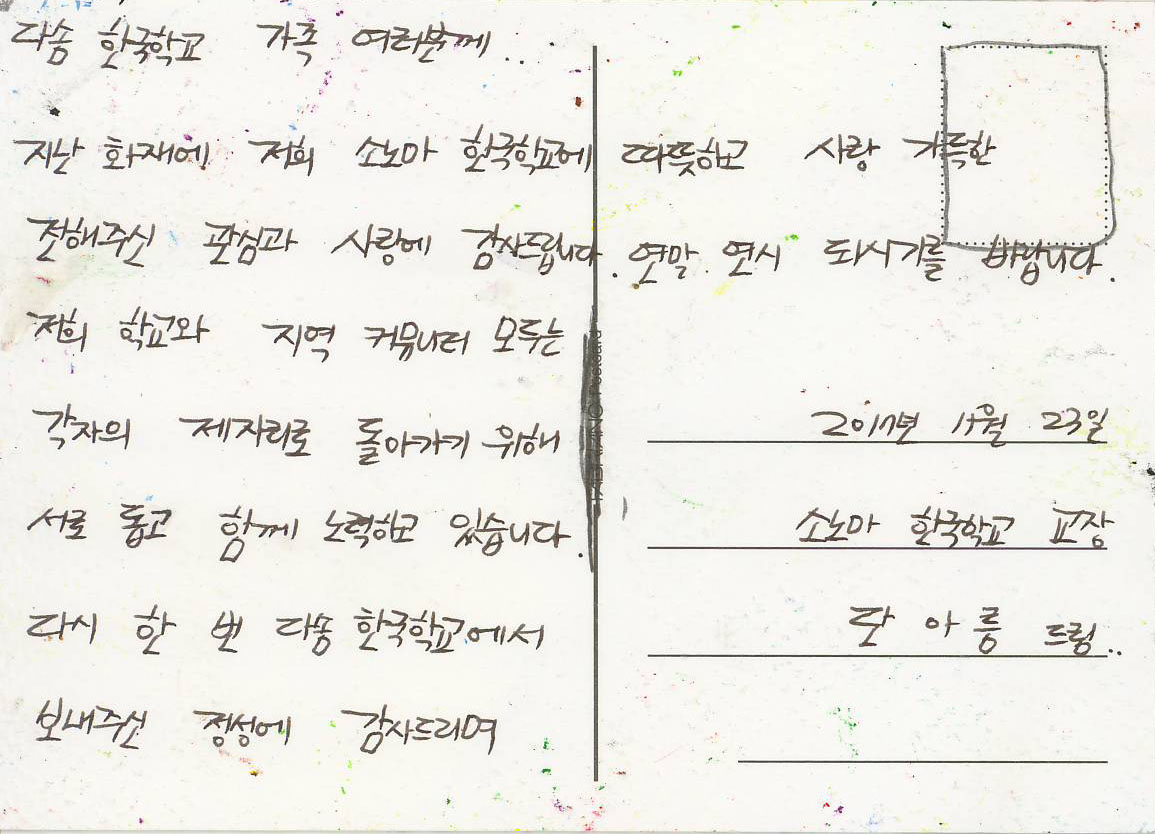 다솜 한국학교 가족 여러분께..
지난 화재에 저희 소노마 한국학교에
전해주신 관심과 사랑에 감사드립니다.
저희 학교와 지역 커뮤니티 모두는
각자의 제자리로 돌아가기 위해
서로 돕고 함께 노력하고 있습니다.
다시 한 번 다솜 한국학교에서
보내주신 정성에 감사드리며
따뜻하고 사랑 가득한
연말 연시 되시기를 바랍니다.
2017년 11월 23일
소노마 한국학교 교장
아름 드림..